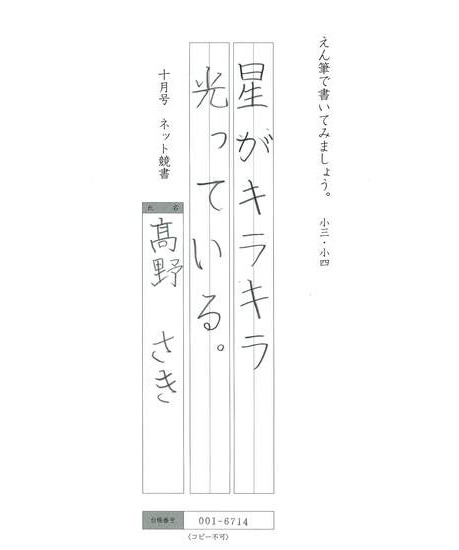 えん筆で書いてみましょう。 小三・小四
星がキラキラ
光っている。
十月号 ネット競書
氏 名
髙野 さき
台帳番号 001-6714
(コピー不可)